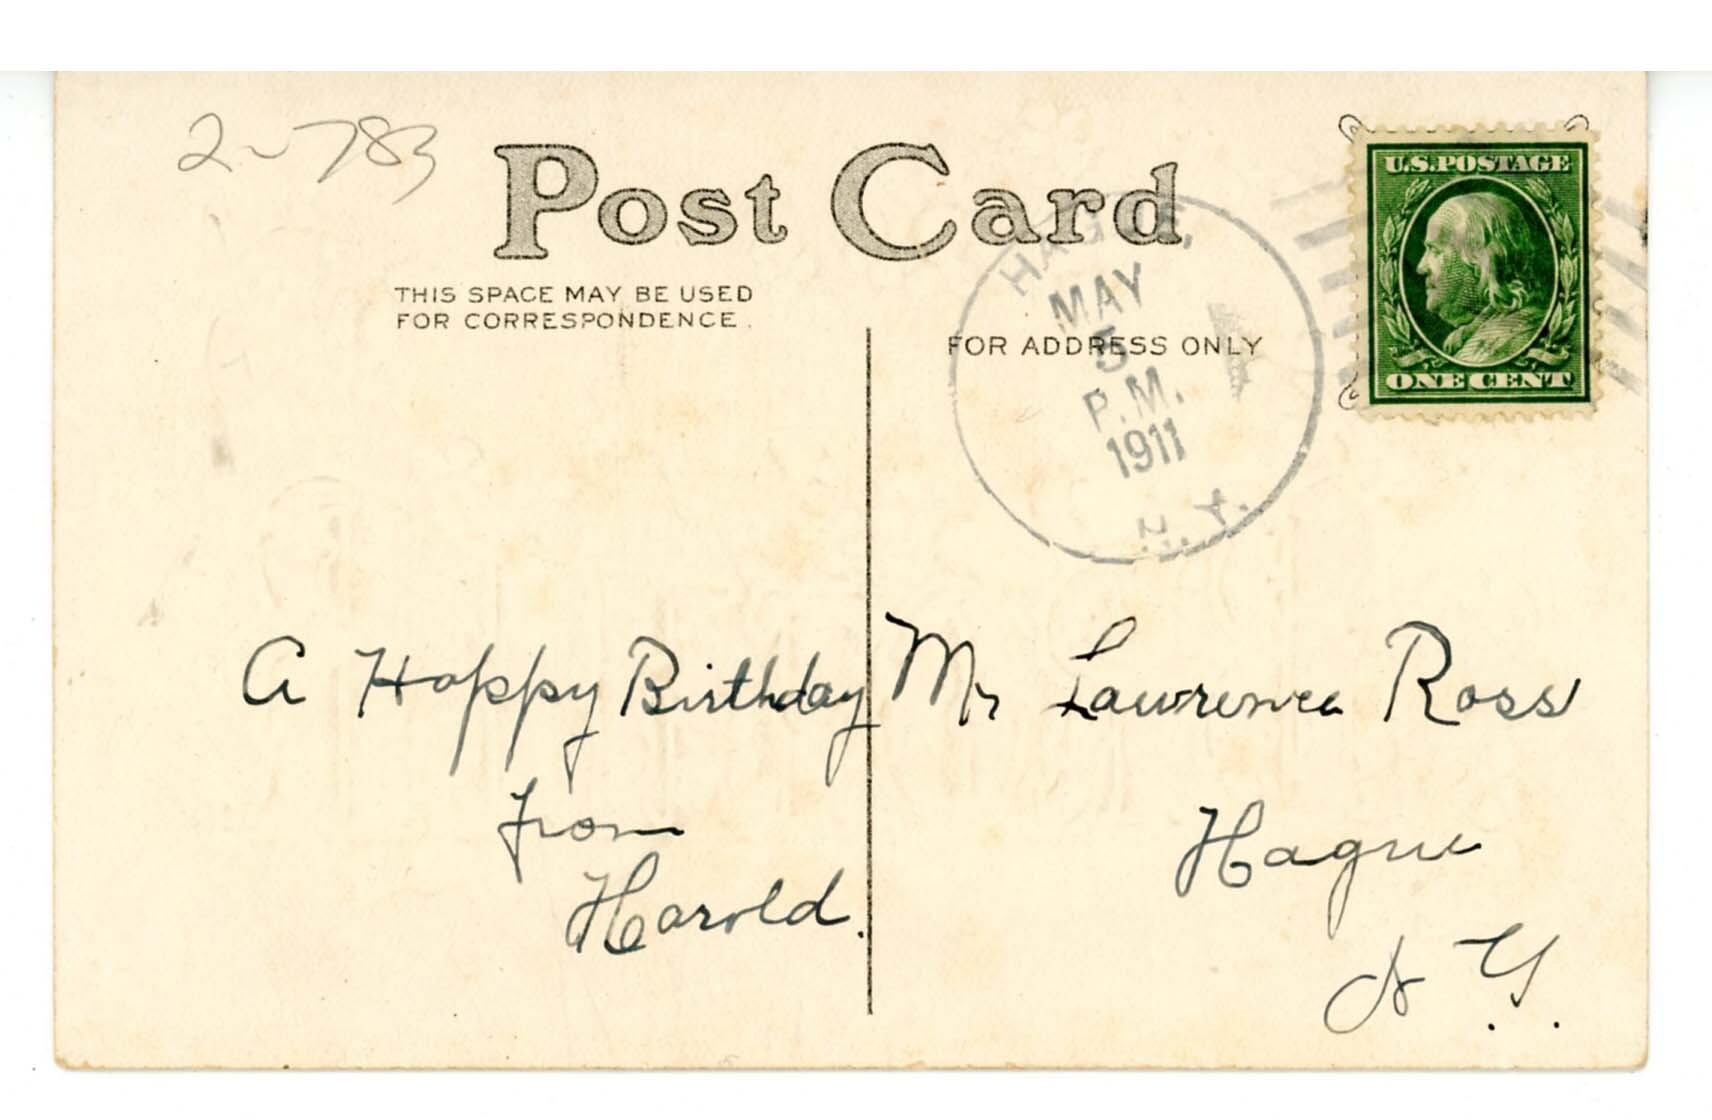 2-783
Post Card
THIS SPACE MAY BE USED
FOR CORRESPONDENCE.
FOR ADDRESS ONLY
HAGUE,
MAY
5
P.M.
1911
N.Y.
U.S.POSTAGE
ONE CENT
A Happy Birthday
from
Harold.
Mr Lawrence Ross
Hague
N.Y.